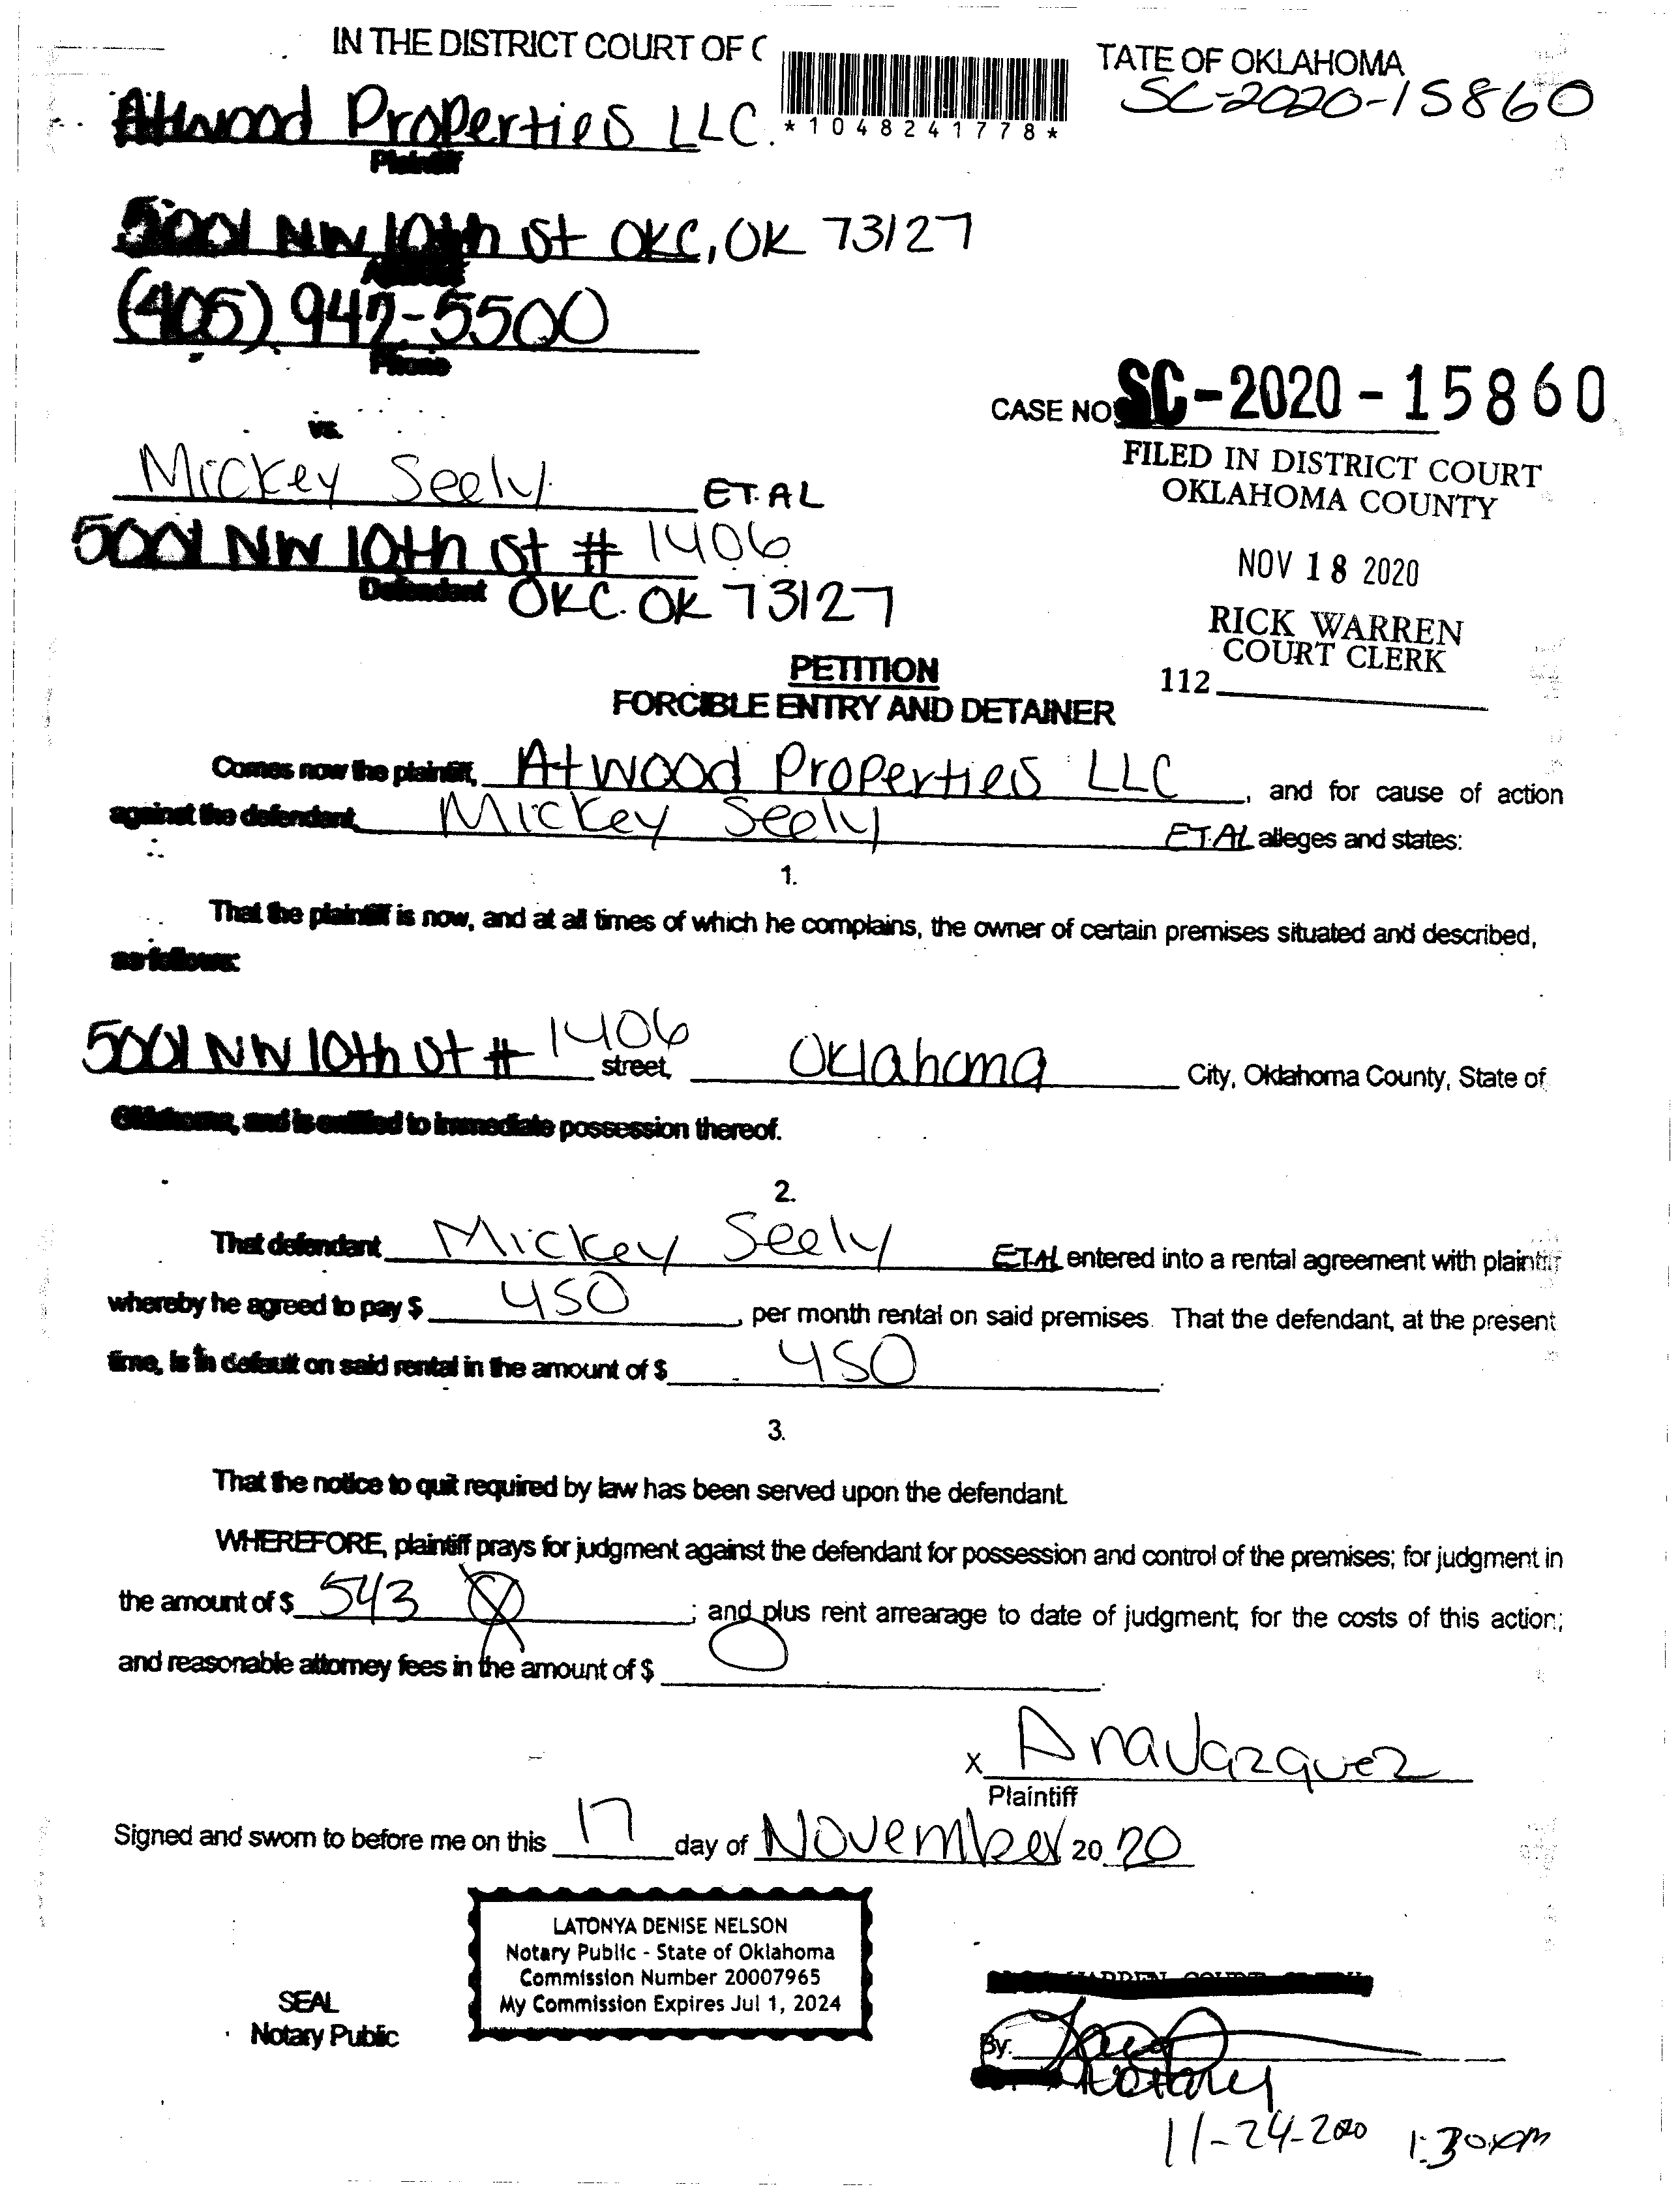 IN THE DISTRICT COURT OF
TATE OF OKLAHOMA
SC-2020-15860
Atwood Properties LLC.
*1048241778*
Plaintiff
5001 NW 10th St OKC, OK 73127
Address
(405) 942-5500
Phone
CASE NO SC-2020-15860
vs.
FILED IN DISTRICT COURT
OKLAHOMA COUNTY
Mickey Seely ET.AL
5001 NW 10th St # 1406
NOV 18 2020
Defendant OKC. OK 73127
RICK WARREN
COURT CLERK
112
PETITION
FORCIBLE ENTRY AND DETAINER
Comes now the plaintiff, Atwood Properties LLC, and for cause of action
against the defendant, Mickey Seely ET.AL alleges and states:
1.
That the plaintiff is now, and at all times of which he complains, the owner of certain premises situated and described,
as follows:
5001 NW 10th St # 1406 street, Oklahoma City, Oklahoma County, State of
Oklahoma, and is entitled to immediate possession thereof.
2.
That defendant Mickey Seely ET.AL entered into a rental agreement with plaintiff
whereby he agreed to pay $ 450, per month rental on said premises. That the defendant, at the present
time, is in default on said rental in the amount of $ 450.
3.
That the notice to quit required by law has been served upon the defendant.
WHEREFORE, plaintiff prays for judgment against the defendant for possession and control of the premises; for judgment in
the amount of $ 543; and plus rent arrearage to date of judgment; for the costs of this action;
and reasonable attorney fees in the amount of $
x Ana Vazquez
Plaintiff
Signed and sworn to before me on this 17 day of November 20 20
LATONYA DENISE NELSON
Notary Public - State of Oklahoma
Commission Number 20007965
My Commission Expires Jul 1, 2024
SEAL
Notary Public
WARREN COURT CLERK
By:
Notary
11-24-2020 1:30pm